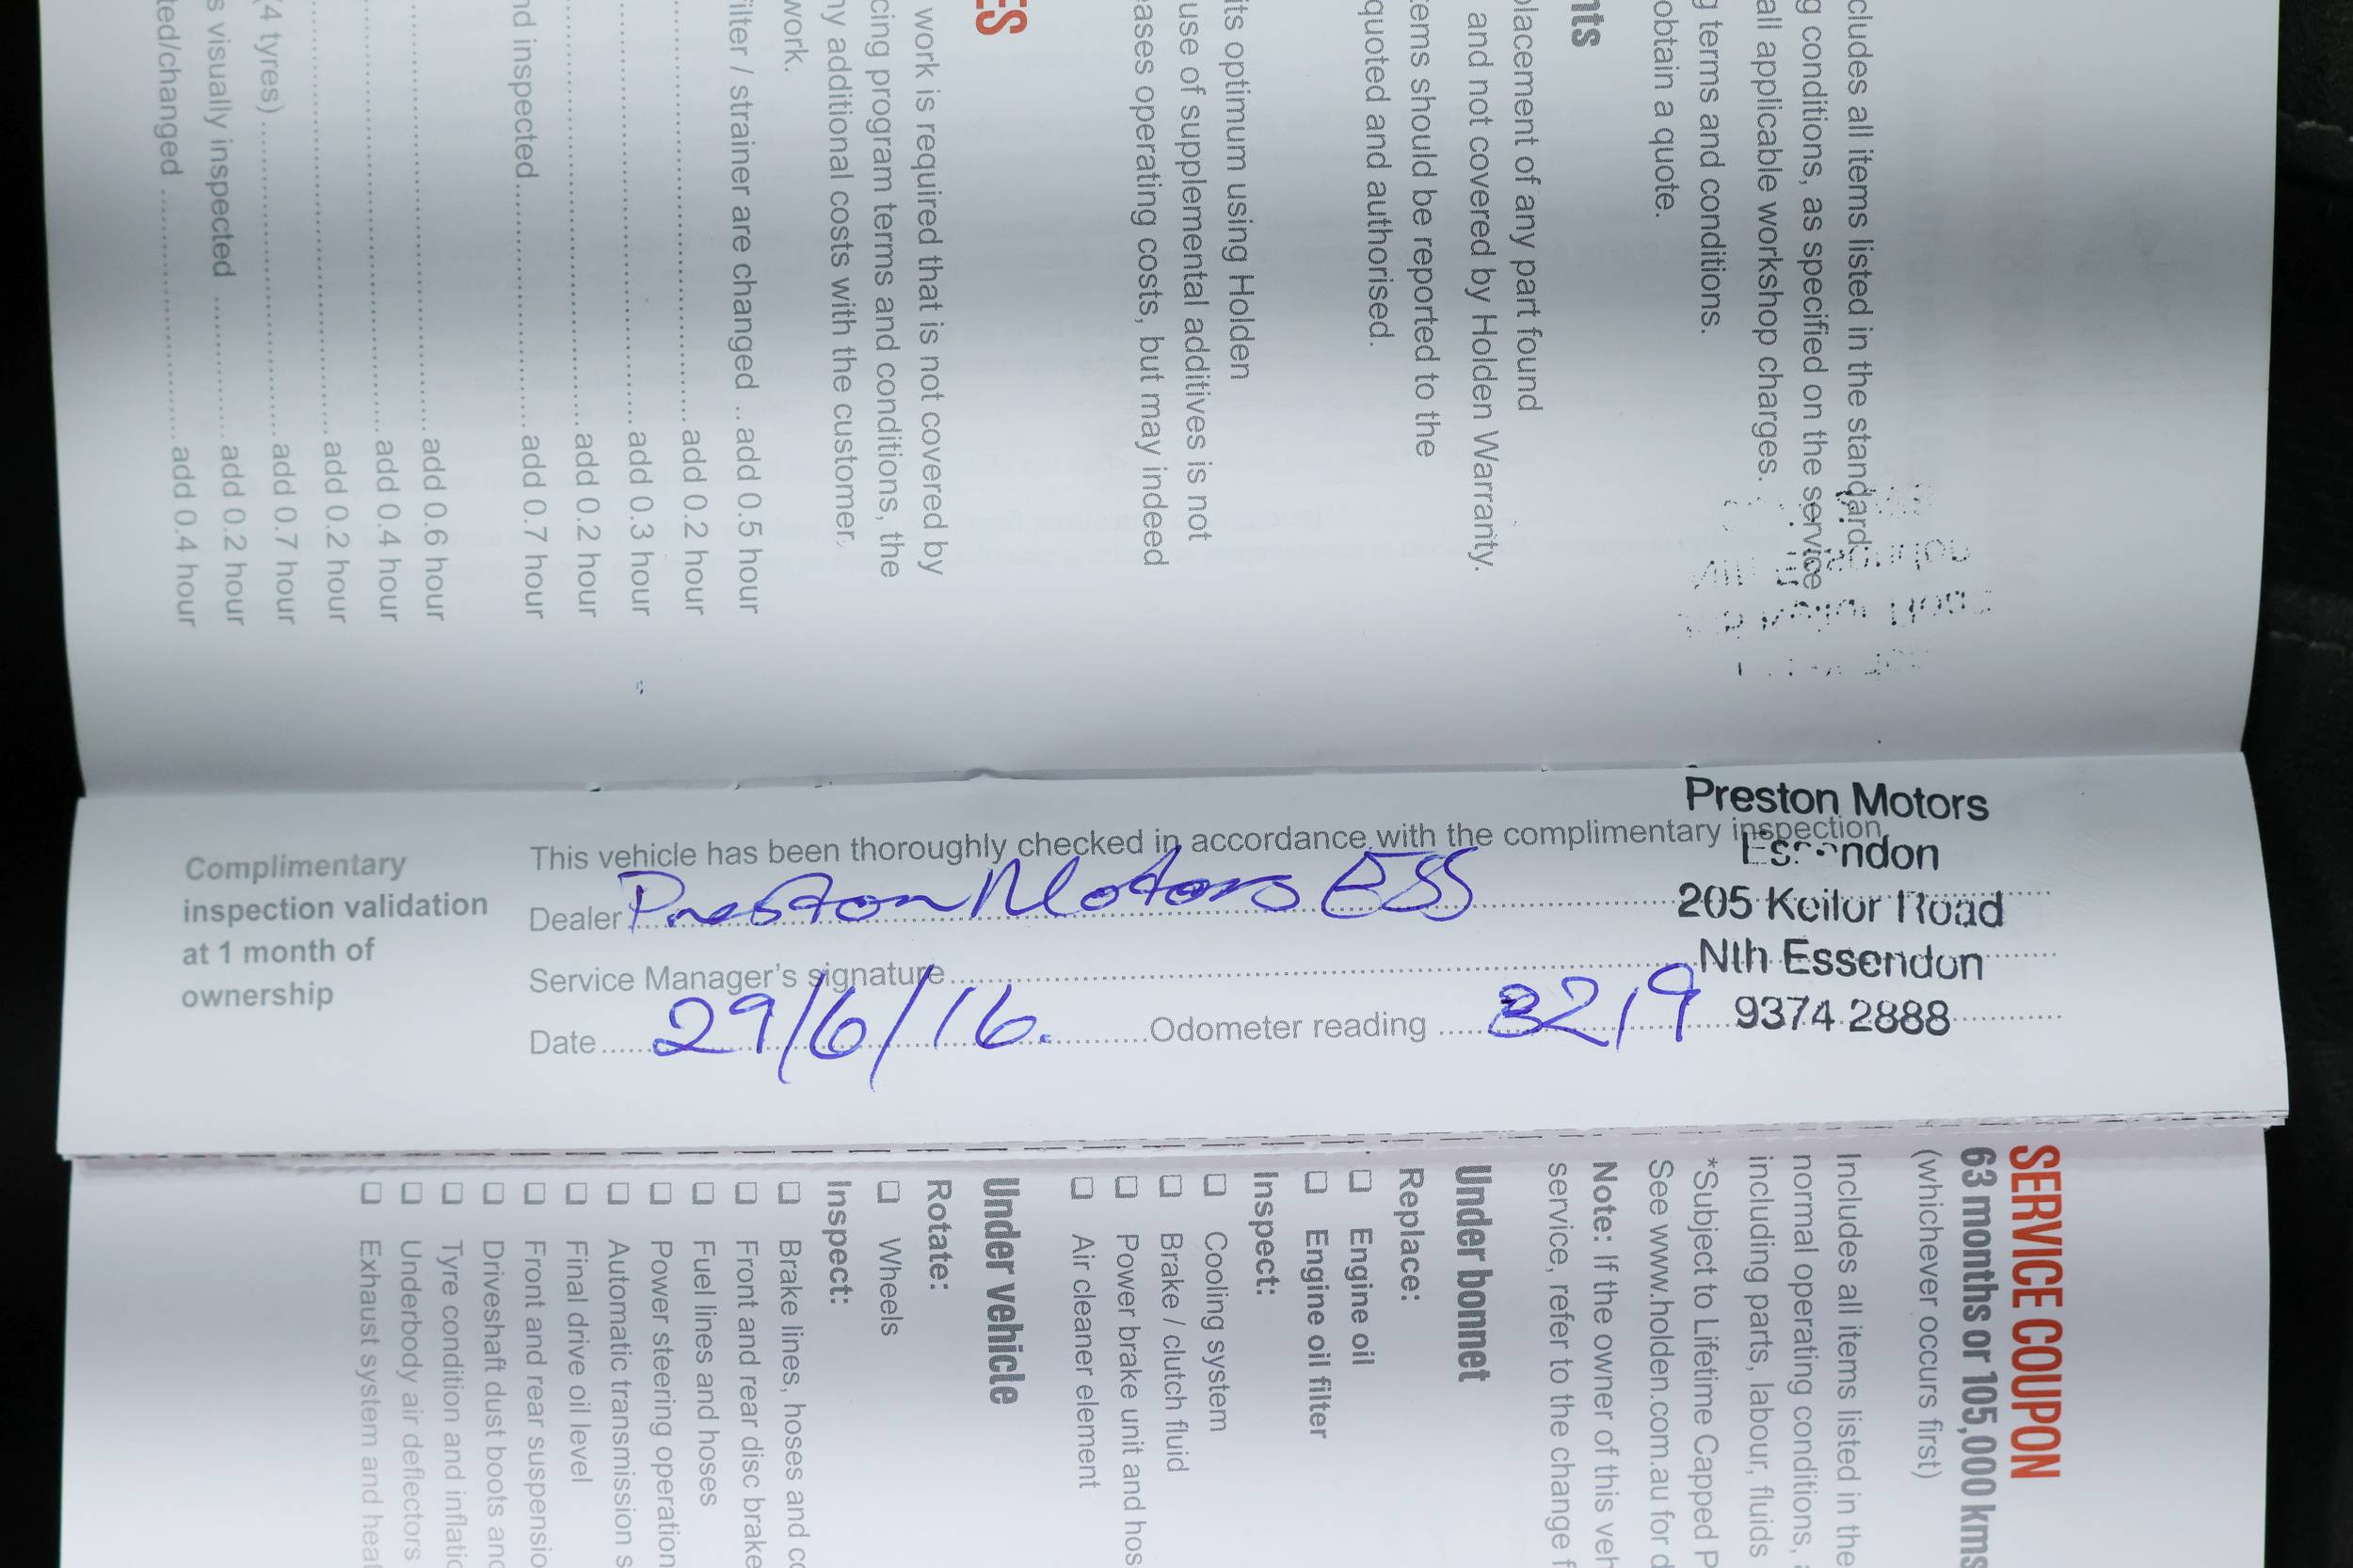 cludes all items listed in the standard
g conditions, as specified on the service
all applicable workshop charges.
g terms and conditions.
obtain a quote.
nts
placement of any part found
and not covered by Holden Warranty.
ems should be reported to the
quoted and authorised.
its optimum using Holden
use of supplemental additives is not
eases operating costs, but may indeed
ES
work is required that is not covered by
cing program terms and conditions, the
ny additional costs with the customer,
work.
filter / strainer are changed .. add 0.5 hour
add 0.2 hour
add 0.3 hour
add 0.2 hour
nd inspected add 0.7 hour
add 0.6 hour
add 0.4 hour
add 0.2 hour
(4 tyres) add 0.7 hour
s visually inspected add 0.2 hour
ted/changed add 0.4 hour
Complimentary
inspection validation
at 1 month of
ownership
This vehicle has been thoroughly checked in accordance with the complimentary inspection.
Dealer Preston Motors ESS
Service Manager's signature
Date 29/6/16. Odometer reading 3219
Preston Motors
Essendon
205 Keilor Road
Nth Essendon
9374 2888
SERVICE COUPON
63 months or 105,000 kms
(whichever occurs first)
Includes all items listed in the
normal operating conditions,
including parts, labour, fluids
*Subject to Lifetime Capped P
See www.holden.com.au for d
Note: If the owner of this veh
service, refer to the change f
Under bonnet
Replace:
❑ Engine oil
❑ Engine oil filter
Inspect:
❑ Cooling system
❑ Brake / clutch fluid
❑ Power brake unit and hos
❑ Air cleaner element
Under vehicle
Rotate:
❑ Wheels
Inspect:
❑ Brake lines, hoses and co
❑ Front and rear disc brake
❑ Fuel lines and hoses
❑ Power steering operation
❑ Automatic transmission s
❑ Final drive oil level
❑ Front and rear suspensio
❑ Driveshaft dust boots and
❑ Tyre condition and inflatio
❑ Underbody air deflectors
❑ Exhaust system and heat